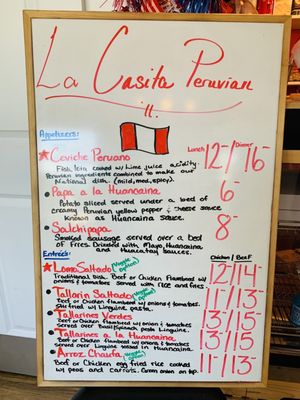 La Casita Peruvian
Appetizers:
Lunch / Dinner
★Ceviche Peruano 12/16
Fish, leta cooked w/ lime juice acidity.
Peruvian ingredients combined to make our
National dish. (mild, med, spicy).
Papa a la Huancaina 6
Potato sliced served under a bed of
creamy Peruvian yellow pepper & cheese sauce
known as Huancaina sauce
Salchipapa 8
Smoked sausage served over a bed
of fries. Drizzled with Mayo, Huancaina
and Huacatay sauces.
Entrées:
Chicken / Beef
★Lomo Saltado Veggie option 12/14
Traditional dish. Beef or Chicken flambored w/
onions & tomatoes served with rice and fries
Tallarin Saltado Veggie option 11/13
Beef or Chicken flambored w/ onions & tomatoes
stir fried w/ Linguine pasta.
Tallarines Verdes 13/15
Beef or Chicken flambored w/ onion & tomatoes
served over Basil/Spinach pesto Linguine.
Tallarines a la Huancaina 13/15
Beef or Chicken flambored w/ onions & tomatoes
served over linguine served in Huancaina
Arroz Chaufa Veggie option 11/13
Beef or Chicken egg fried rice cooked
w/ peas and carrots. Green onion on top.